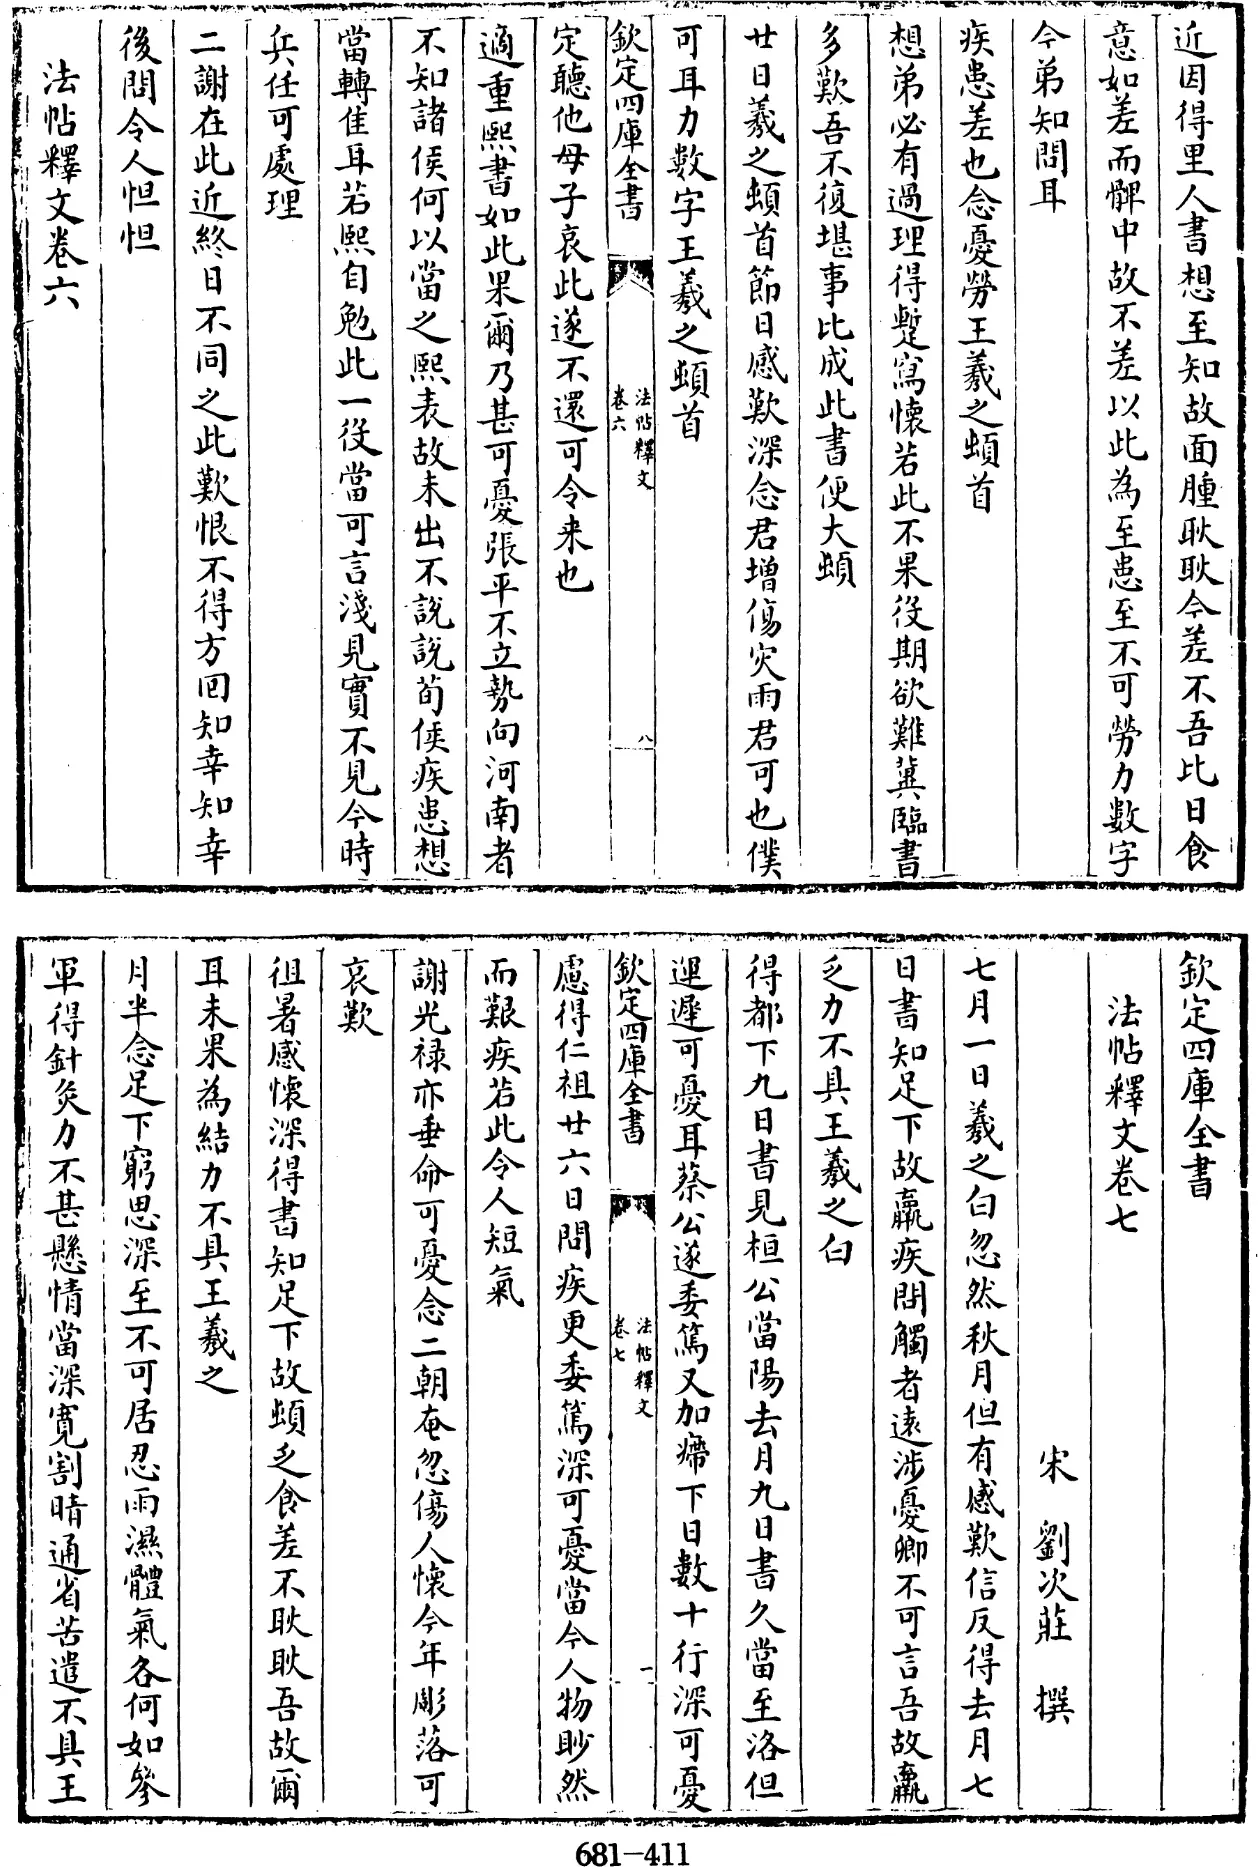 近因得里人書想至知故面腫耿耿今差不吾比日食
意如差而髀中故不差以此為至患至不可勞力數字
令弟知問耳
疾患差也念憂勞王羲之頓首
想弟必有過理得蹔寫懷若此不果後期欲難冀臨書
多歎吾不復堪事比成此書便大頓
廿日羲之頓首節日感歎深念君增傷灾雨君可也僕
可耳力數字王羲之頓首
欽定四庫全書
法帖釋文
卷六
八
定聽他母子哀此遂不還可令来也
適重熙書如此果爾乃甚可憂張平不立勢向河南者
不知諸侯何以當之熙表故未出不説説荀侯疾患想
當轉佳耳若熙自勉此一役當可言淺見實不見今時
兵任可處理
二謝在此近終日不同之此歎恨不得方回知幸知幸
後問令人怛怛
法帖釋文卷六
欽定四庫全書
法帖釋文卷七
宋 劉次莊 撰
七月一日羲之白忽然秋月但有感歎信反得去月七
日書知足下故羸疾問觸者遠涉憂卿不可言吾故羸
乏力不具王羲之白
得都下九日書見桓公當陽去月九日書久當至洛但
運遲可憂耳蔡公遂委篤又加㿃下日數十行深可憂
欽定四庫全書
法帖釋文
卷七
一
慮得仁祖廿六日問疾更委篤深可憂當今人物眇然
而艱疾若此令人短氣
謝光禄亦垂命可憂念二朝奄忽傷人懷今年彫落可
哀歎
徂暑感懷深得書知足下故頓乏食差不耿耿吾故爾
耳未果為結力不具王羲之
月半念足下窮思深至不可居忍雨濕體氣各何如參
軍得針灸力不甚懸情當深寛割晴通省苦遣不具王
681-411